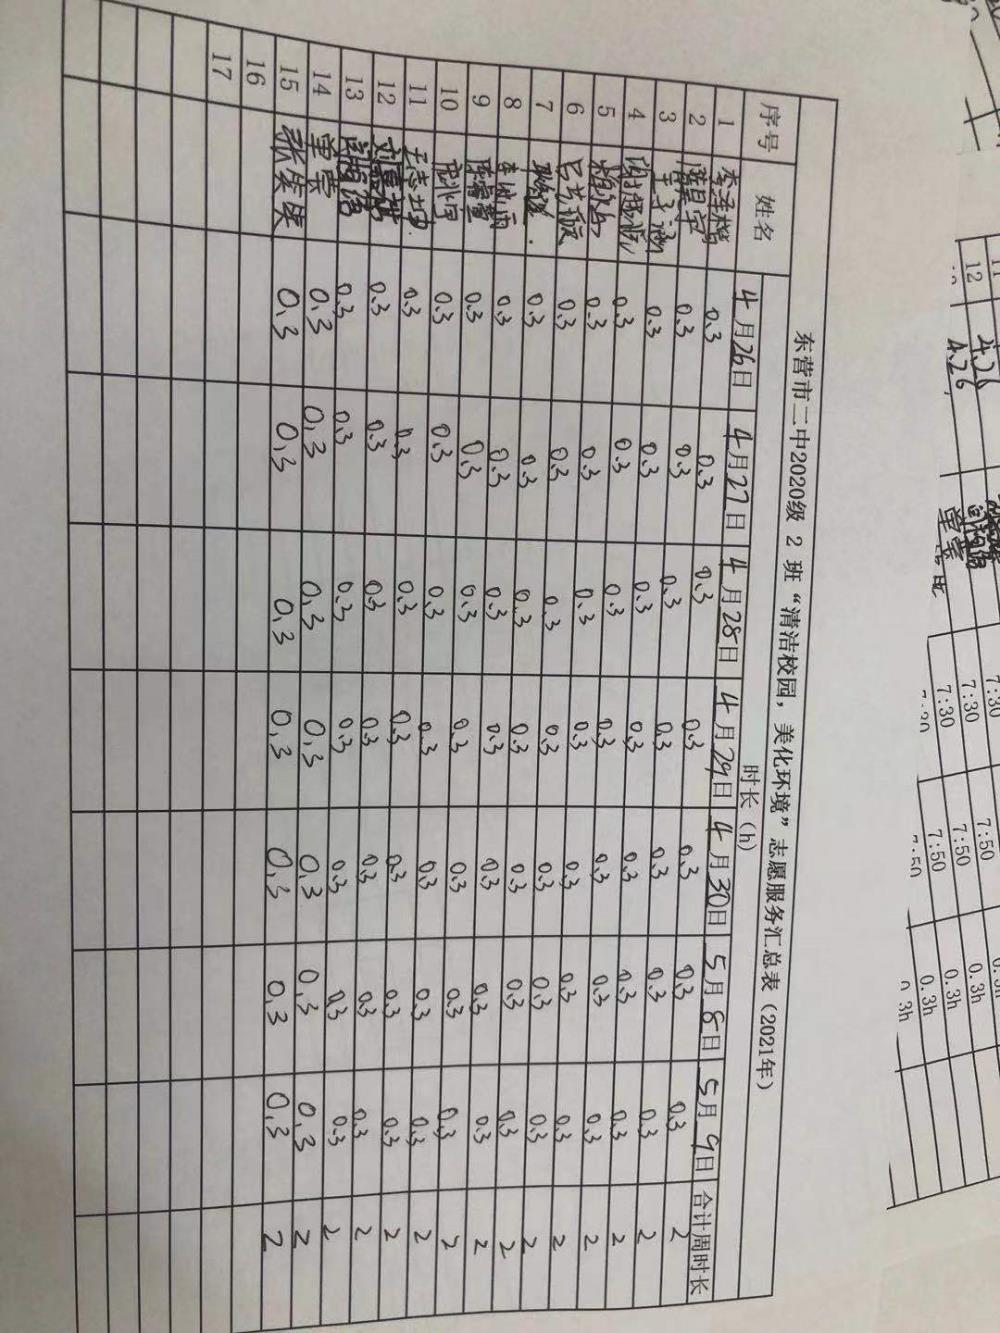 东营市二中2020级 2 班“清洁校园，美化环境”志愿服务汇总表（2021年）
序号 姓名 时长（h）
4月26日 4月27日 4月28日 4月29日 4月30日 5月8日 5月9日 合计周时长
1 0.3 0.3 0.3 0.3 0.3 0.3 0.3 2
2 0.3 0.3 0.3 0.3 0.3 0.3 0.3 2
3 王子涵 0.3 0.3 0.3 0.3 0.3 0.3 0.3 2
4 0.3 0.3 0.3 0.3 0.3 0.3 0.3 2
5 0.3 0.3 0.3 0.3 0.3 0.3 0.3 2
6 0.3 0.3 0.3 0.3 0.3 0.3 0.3 2
7 0.3 0.3 0.3 0.3 0.3 0.3 0.3 2
8 0.3 0.3 0.3 0.3 0.3 0.3 0.3 2
9 0.3 0.3 0.3 0.3 0.3 0.3 0.3 2
10 0.3 0.3 0.3 0.3 0.3 0.3 0.3 2
11 0.3 0.3 0.3 0.3 0.3 0.3 0.3 2
12 0.3 0.3 0.3 0.3 0.3 0.3 0.3 2
13 0.3 0.3 0.3 0.3 0.3 0.3 0.3 2
14 0.3 0.3 0.3 0.3 0.3 0.3 0.3 2
15 0.3 0.3 0.3 0.3 0.3 0.3 0.3 2
16
17
11 4.26 7:30 7:50
12 4.26 7:30 7:50 0.3h
7:50 0.3h
0.3h